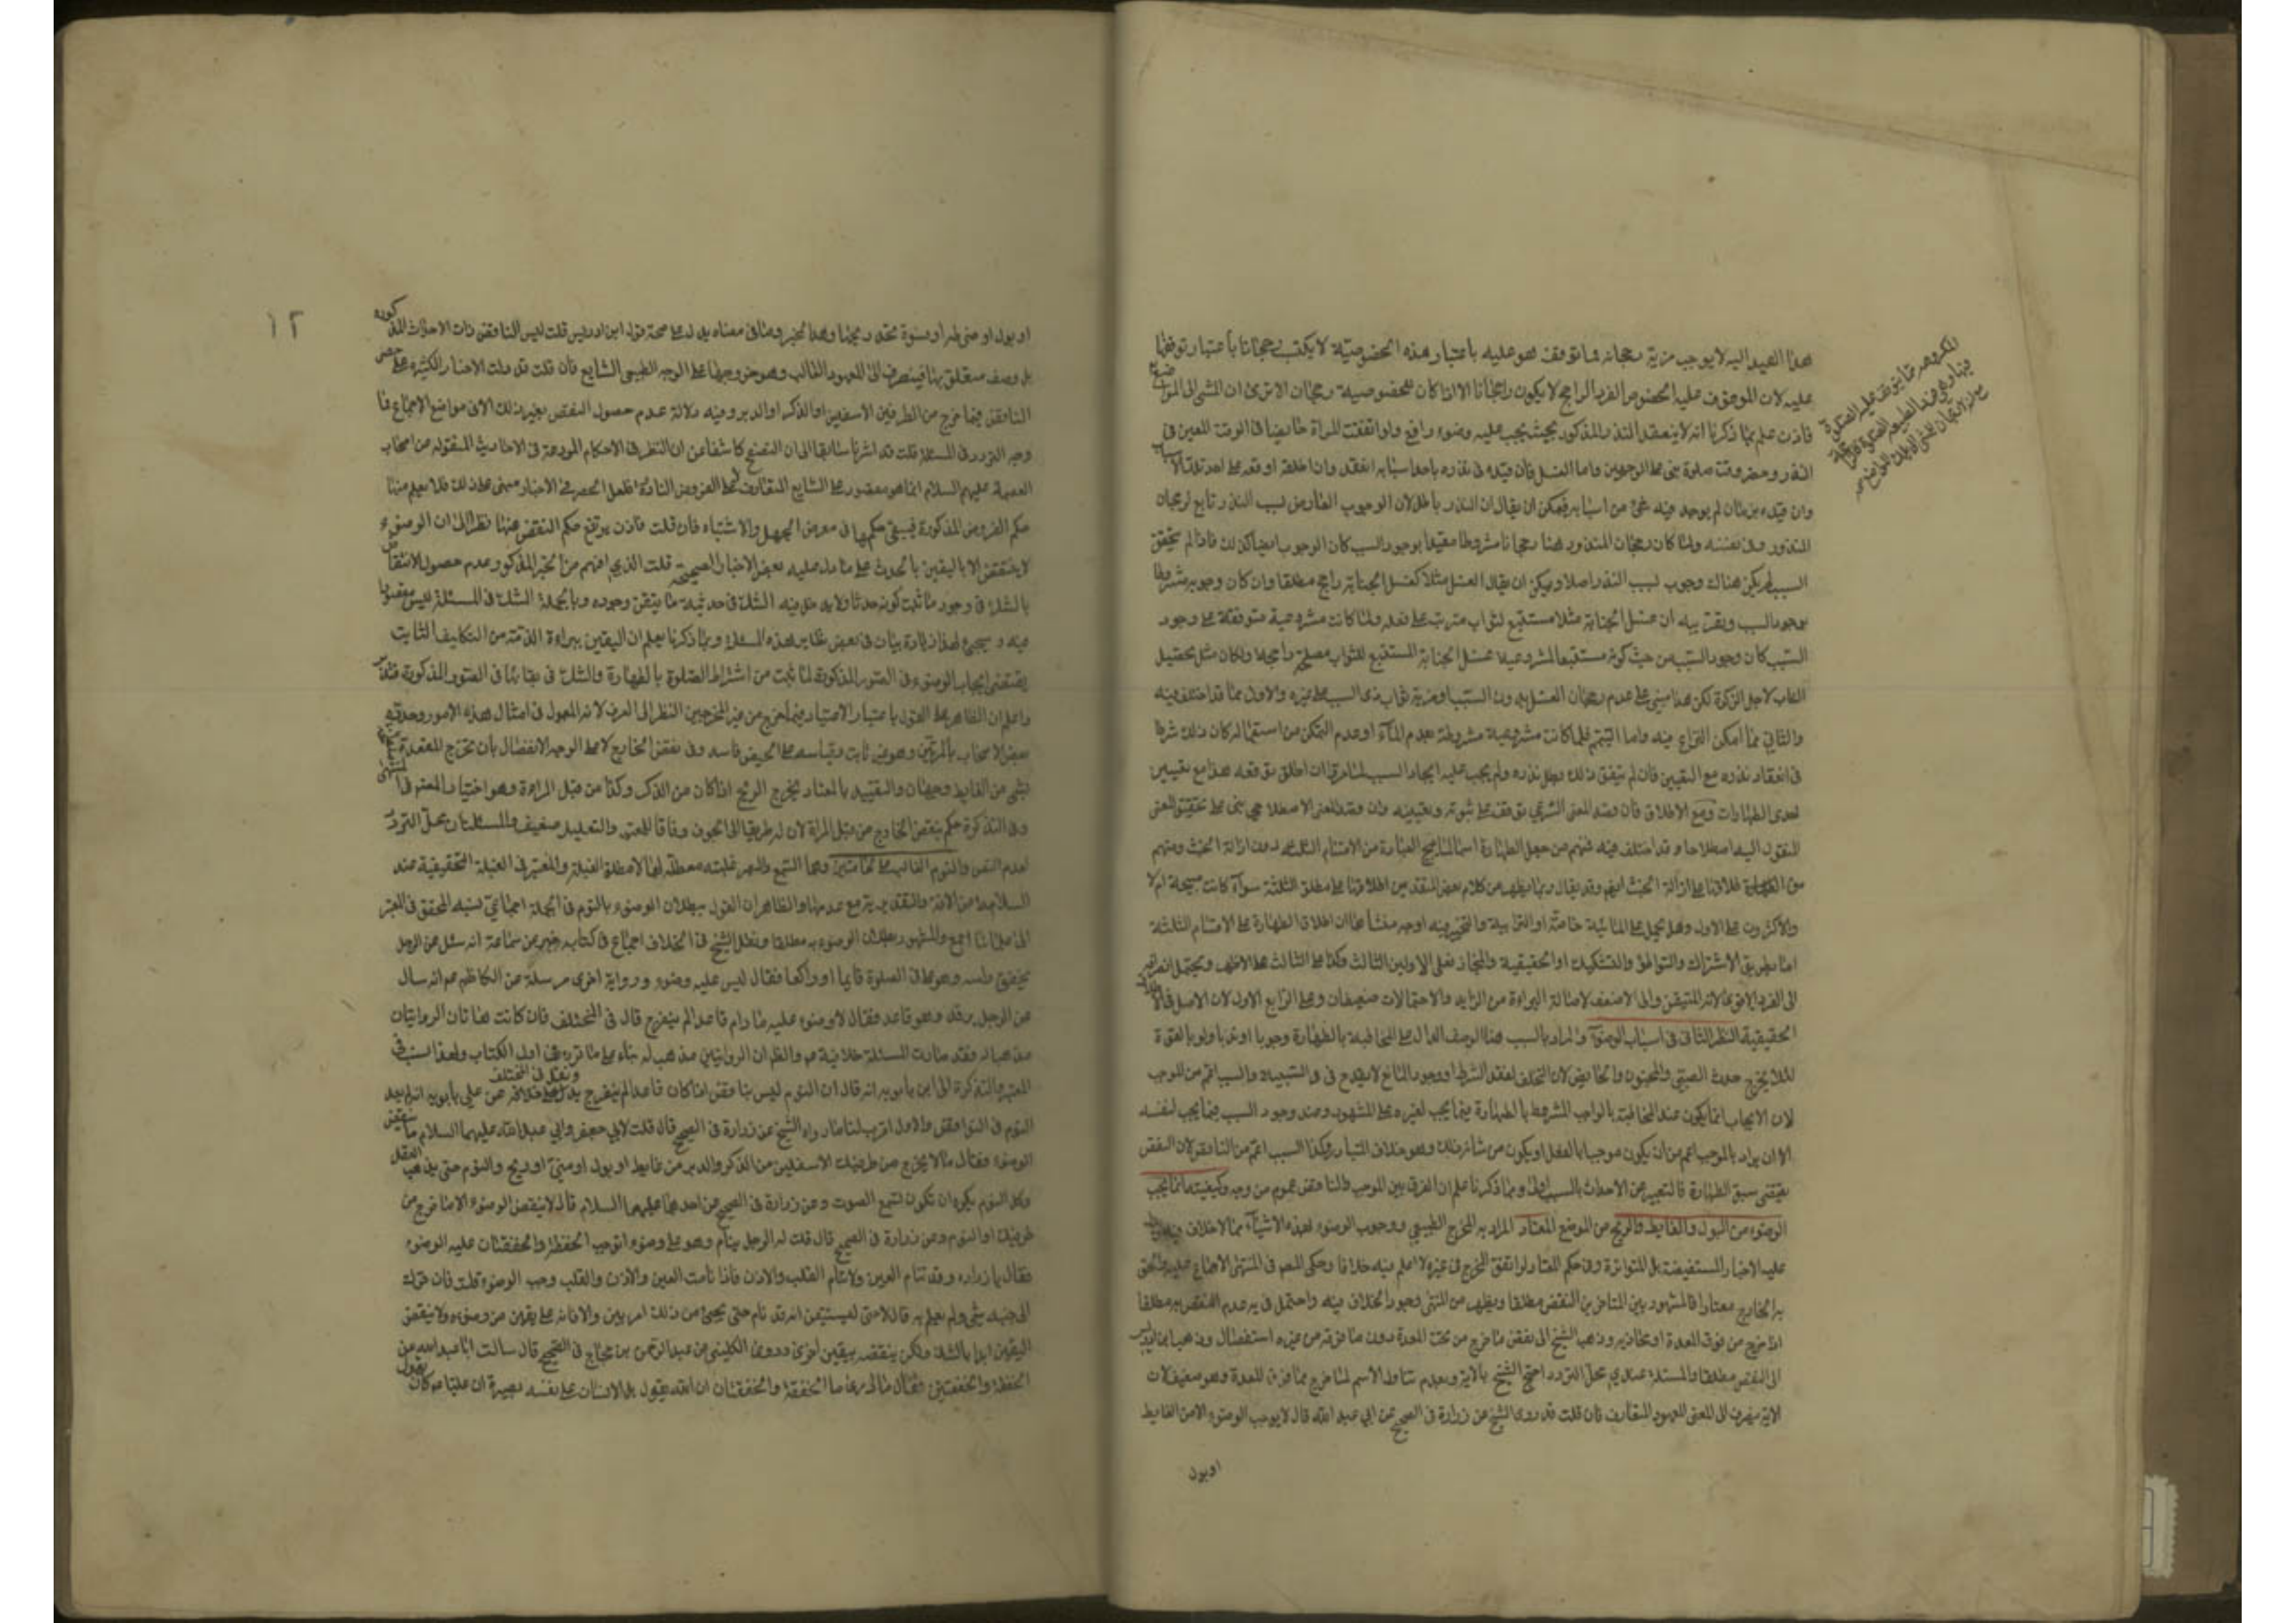 هذا القيد اليه لا يوجب مزية رجحانه فما توقف هو عليه باعتبار هذه الخصوصية لا يكتسب رجحانا باعتبار توقفها
عليه لان الموقوف عليه الخصوص الفرد الراجح لا يكون راجحا الا اذا كان للخصوصية رجحان الا ترى ان المشي الى المواضع
فاذن علم بما ذكرنا انه لا ينعقد النذر المذكور بحيث يجب عليه وضوء رافع ولو اتفقت للمراة حايضا فى الوقت المعين فى
النذر وحضر وقت صلوة بنى على الوجهين واما الغسل فان قيده فى نذره باحد اسبابه انعقد وان اطلقه اوقعه على احد تلك الاسباب
وان قيده بزمان لم يوجد فيه شئ من اسبابه فيمكن ان يقال ان النذر باطل لان الوجوب العارض لسبب النذر تابع لرجحان
المنذور وفى نفسه ولما كان رجحان المنذور هنا رجحانا مشروطا مقيدا بوجود السبب كان الوجوب ايضا كذلك فاذا لم يتحقق
السبب لم يكن هناك وجوب لسبب النذر اصلا ويمكن ان يقال الغسل مثلا كغسل الجنابة راجح مطلقا وان كان وجوبه مشروطا
بوجود السبب وتقريبه ان غسل الجنابة مثلا مستتبع لثواب مترتب على فعله ولما كانت مشروعية متوقفة على وجود
السبب كان وجود السبب من حيث كونه مستتبعا لمشروعية غسل الجنابة المستتبع للثواب مصلحة راجحا ولكان مثل تحصيل
النصاب لاجل الزكوة لكن هذا مبنى على عدم رجحان الغسل بدون السبب او مزية ثواب ذى السبب على غيره والاول مما قد اختلف فيه
والثانى مما امكن النزاع فيه واما التيمم فلما كانت مشروعية مشروطة بعدم المآء او عدم التمكن من استعماله كان ذلك شرطا
فى انعقاد نذره مع التعيين فان لم يتفق ذلك بطل نذره ولم يجب عليه ايجاد السبب لما عرفت ان اطلق توقعه هذا مع تعيين
احدى الطهارات ومع الاطلاق فان قصد المعنى الشرعى توقف على ثبوته وتعيينه وان قصد المعنى الاصطلاحى بنى على تحقيق المعنى
المنقول اليه اصطلاحا وقد اختلف فيه فمنهم من جعل الطهارة اسما للمبيح للعبادة من الاقسام الثلثة دون ازالة الخبث ومنهم
من اطلاقنا على ازالة الخبث ايضا وقد يقال ربما يظهر من كلام بعض المتقدمين اطلاقنا على مطلق الثلثة سوآء كانت مبيحة ام لا
والاكثرون على الاول وهل يحمل على المائية خاصة او الترابية والتخيير فيه اوجه منشأها ان اطلاق الطهارة على الاقسام الثلثة
اما بطريق الاشتراك والتواطؤ والتشكيك او الحقيقية والمجاز فعلى الاولين الثالث وكذا على الثالث على الاظهر ويحتمل انصرافه
الى الفرد الاقوى لانه المتيقن والى الاضعف لاصالة البراءة من الزايد والاحتمالات ضعيفان وعلى الرابع الاول لان الاصل فى الاطلاق
الحقيقية النظر الثانى فى اسباب الوضوء والمراد بالسبب هنا الوصف الدال على المخاطبة بالطهارة وجوبا او ندبا ولو بالقوة
لئلا يخرج حدث الصبى والمجنون والحايض لان التخلف لفقد الشرط او وجود المانع لا يقدح فى السببية والسبب اعم من الموجب
لان الايجاب انما يكون عند المخاطبة بالواجب المشروط بالطهارة فيما يجب لغيره على المشهور وعند وجود السبب فيما يجب لنفسه
الا ان يراد بالموجب اعم من ان يكون موجبا بالفعل او يكون من شانه ذلك وهو خلاف المتبادر وكذا السبب اعم من الناقض لان النقض
يقتضى سبق الطهارة فالتعبير عن الاحداث بالسبب اولى ومما ذكرنا علم ان الفرق بين الموجب والناقض عموم من وجه وكيفيته انما يجب
الوضوء من البول والغايط والريح من الموضع المعتاد المراد به المخرج الطبيعى ووجوب الوضوء لهذه الاشيآء مما لا خلاف فيه
عليه الاخبار المستفيضة بل المتواترة وفى حكم المعتاد لو اتفق المخرج فى غيره لا اعلم فيه خلافا وحكى المصر فى المنتهى الاجماع عليه
به الخارج معتادا فالمشهور بين المتاخرين النقض مطلقا ويظهر من المنتهى وجود الخلاف فيه واحتمل فى يه عدم النقض به مطلقا
اذا خرج من فوق المعدة او محاذيه وذهب الشيخ الى نقض ما خرج من تحت المعدة دون ما فوقه من غيره استفصال وذهب ابن ادريس
الى النقض مطلقا والمسئلة عندى محل التردد احتج الشيخ بالاية وبعدم تناول الاسم لما خرج مما فوق المعدة وهو ضعيف لان
الاية ينصرف الى المعنى المعهود المتعارف فان قلت قد روى الشيخ عن زرارة فى الصحيح عن ابى عبد الله قال لا يوجب الوضوء الا من الغايط
او بول
او بول او ضرطة او فسوة تجد ريحها وهذا الخبر وما فى معناه يدل على صحة قول ابن ادريس قلت ليس الناقض ذات الاحداث المذكورة
بل وصف متعلق بها فينصرف الى المعهود الغالب وهو خروجها على الوجه الطبيعى الشايع فان قلت قد دلت الاخبار الكثيرة على حصر
الناقض فيما خرج من الطرفين الاسفلين او الذكر او الدبر وفيه دلالة عدم حصول النقض بغير ذلك الا فى مواضع الاجماع فما
وجه التردد فى المسئلة قلت قد اشرنا سابقا الى ان التصفح كاشفا عن ان النظر فى الاحكام المودعة فى الاحاديث المنقولة من اصحاب
العصمة عليهم السلام انما هو مقصور على الشايع المتعارف لا على الفروض النادرة فلعل الحصر فى الاخبار مبنى على ذلك فلا يعلم منها
حكم الفروض المذكورة فيبقى حكمها فى معرض الجهل والاشتباه فان قلت فاذن يرتفع حكم النقض عنها نظرا الى ان الوضوء
لا ينتقض الا باليقين بالحدث على ما دل عليه بعض الاخبار الصحيحة قلت الذى افهم من الخبر المذكور عدم حصول الانتقاض
بالشك فى وجود ما ثبت كونه حدثا ولا يدخل فيه الشك فى حدثية ما يتقن وجوده وبالجملة الشك فى المسئلة ليس معدودا
فيه وسيجئ لهذا زيادة بيان فى بعض نظاير هذه المسئلة ومما ذكرنا يعلم ان اليقين ببراءة الذمة من التكاليف الثابت
يقتضى ايجاب الوضوء فى الصور المذكورة لما ثبت من اشتراط الصلوة بالطهارة والشك فى بقائها فى الصور المذكورة فتدبر
واعلم ان الظاهر على القول باعتبار الاعتياد فيما خرج من غير المخرجين النظر الى العرف لانه المعول فى امثال هذه الامور وحدده
بعض الاصحاب بالمرتين وهو غير ثابت وقياسه على الحيض فاسد وفى نقض الخارج لا على الوجه الانفصال بان تخرج المقعدة
بشئ من الغايط وجهان والتقييد بالمعتاد يخرج الريح اذا كان من الذكر وكذا من قبل المراءة وهو اختيار المصر فى المنتهى
وفى التذكرة حكم بنقض الخارج من قبل المراة لان له طريقا الى الجوف وفاقا للمعتبر والتعليل ضعيف والمسئلتان محل التردد
لعدم النص والنوم الغالب على الحاستين وهما السمع والبصر غلبته معطلة لهما لا مطلق الغلبة والمعتبر فى الغلبة التحقيقية عند
السلامة من الافة والتقدير يتم مع عدمها والظاهر ان القول ببطلان الوضوء بالنوم فى الجملة اجماعى نسبه المحقق فى المعتبر
الى علمائنا اجمع والمشهور بطلان الوضوء به مطلقا ونقل الشيخ فى الخلاف اجماع فى كتابه خبر عن سماعة انه سئل عن الرجل
يخفق راسه وهو فى الصلوة قايما او راكعا فقال ليس عليه وضوء ورواية اخرى مرسلة عن الكاظم عم انه سال
عن الرجل يرقد وهو قاعد فقال لا وضوء عليه ما دام قاعدا لم ينفرج قال فى المختلف فان كانت هاتان الروايتان
مذهبا له فقد صارت المسئلة خلافية عم والظ ان الروايتين مذهب له بناء على ما قرره فى اول الكتاب ولهذا نسب فى
المعتبر والتذكرة الى ابن بابويه انه قال ان النوم ليس بناقض اذا كان قاعدا لم ينفرج ونقل فى المختلف عن على بن بابويه انه لم يعد
النوم فى النواقض والاول اقرب لنا ما رواه الشيخ عن زرارة فى الصحيح قال قلت لابى جعفر وابى عبد الله عليهما السلام ما ينقض
الوضوء فقال ما يخرج من طرفيك الاسفلين من الذكر والدبر من غايط او بول او منى او ريح والنوم حتى يذهب العقل
وكل النوم يكره الا ان تكون تسمع الصوت وعن زرارة فى الصحيح عن احدهما عليهما السلام قال لا ينقض الوضوء الا ما خرج من
طرفيك او النوم وعن زرارة فى الصحيح قال قلت له الرجل ينام وهو على وضوء اتوجب الخفقة والخفقتان عليه الوضوء
فقال يا زراره وقد تنام العين ولا تنام القلب والاذن فاذا نامت العين والاذن والقلب وجب الوضوء قلت فان حرك
الى جنبه شئ ولم يعلم به قال لا حتى يستيقن انه قد نام حتى يجئ من ذلك امر بين والا فانه على يقين من وضوءه ولا ينقض
اليقين ابدا بالشك ولكن ينقضه بيقين اخر وروى الكلينى عن عبد الرحمن بن حجاج فى الصحيح قال سالت ابا عبد الله عن
الخفقة والخفقتين فقال ما ادرى ما الخفقة والخفقتان ان الله يقول بل الانسان على نفسه بصيرة ان عليا عم كان يقول
١٢